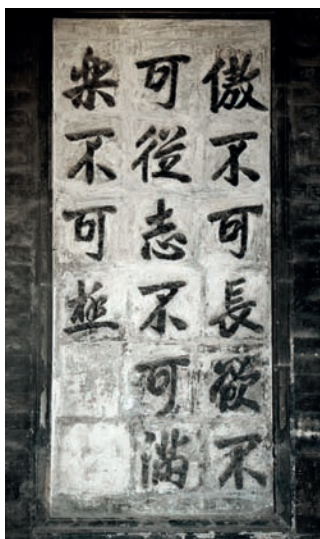 傲不可長欲不
可從志不可滿
楽不可極